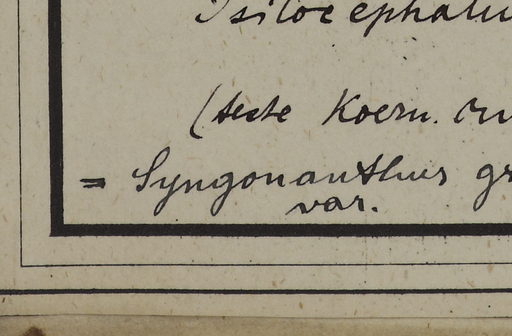 Psilocephalu
(teste Koern. in
= Syngonanthus gr
var.